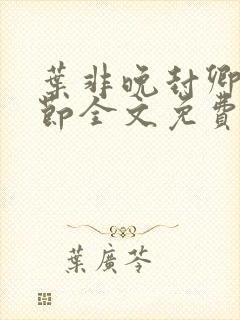 葉非晚封卿
節全文免費
葉廣芩